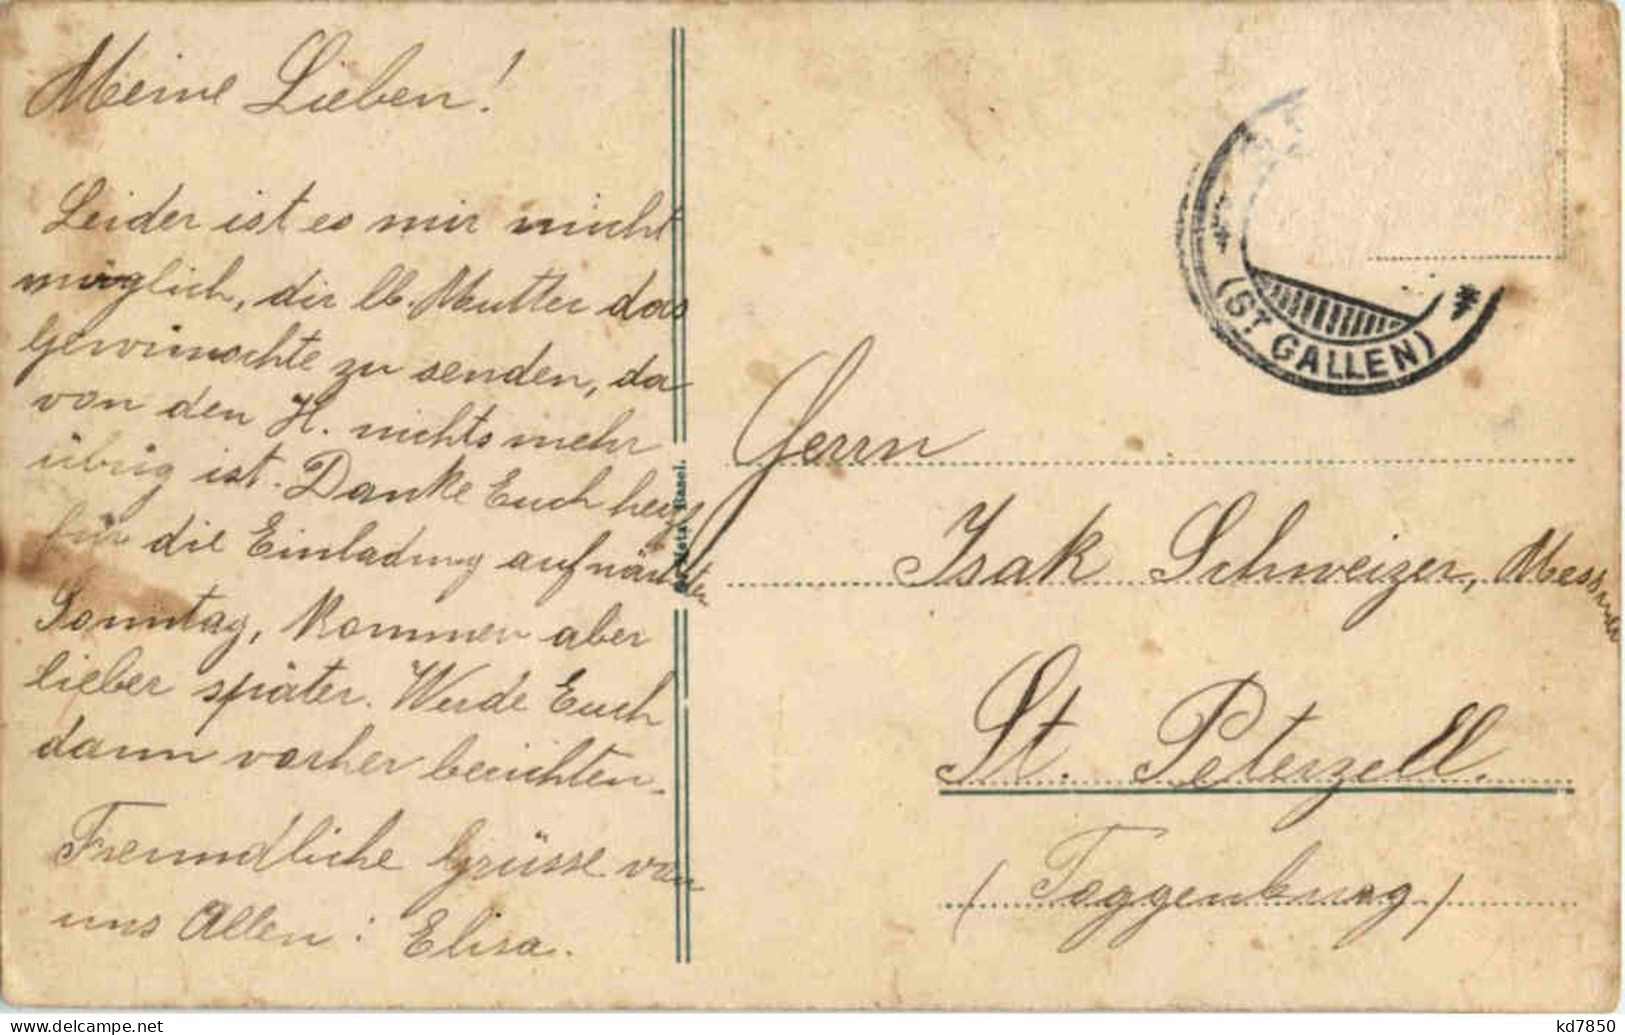 Meine Lieben!
Leider ist es mir nicht
möglich, dir lb. Mutter das
gewünschte zu senden, da
von den H. nichts mehr
übrig ist. Danke Euch herzl
für die Einladung auf nächsten
Sonntag, kommen aber
lieber später. Werde Euch
dann vorher berichten.
Freundliche Grüsse von
uns Allen: Elisa.
Metz, Basel.
(ST. GALLEN)
Herrn
Isak Schweizer, Messmer
St. Peterzell.
(Toggenburg)
kd7850